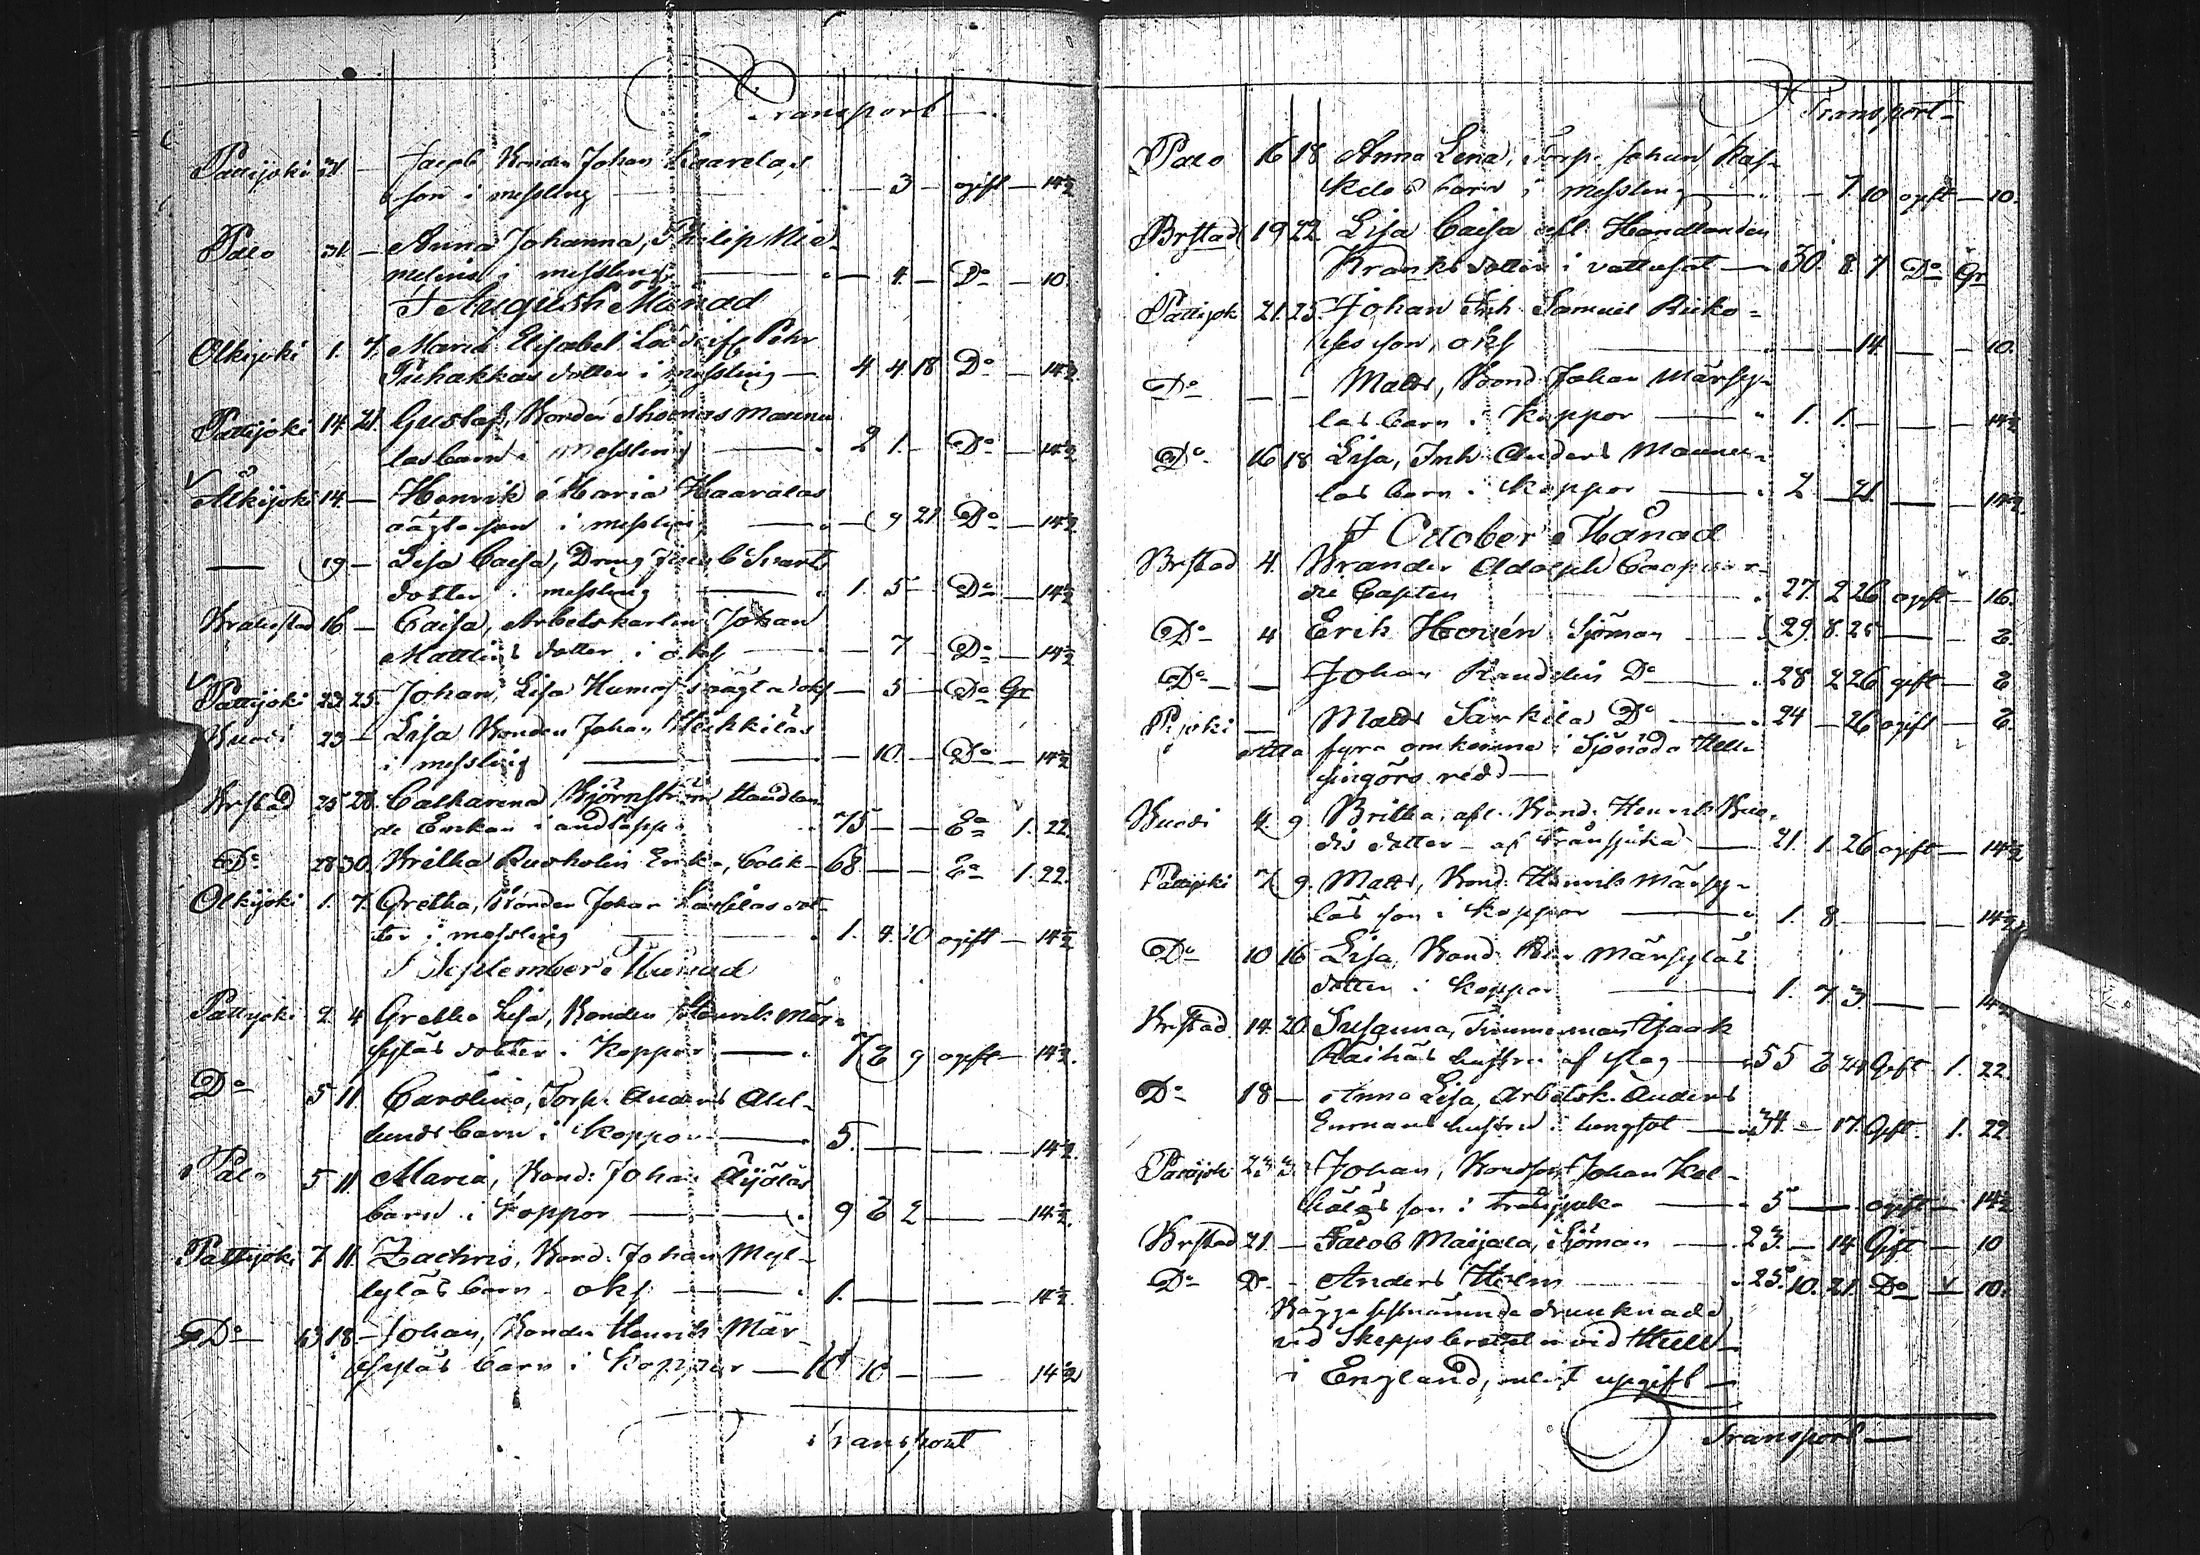 Transport
Pattijoki 31. — Jacob, Bonden Johan Kaarelas
son i messling — 3 — ogift — 14½
Palo 31. — Anna Johanna, Philip Nie-
melins i messling — 4. — Do — 10.
I Augusti Månad
Olkijoki 1. 7. Maria Elisabet, Pehr
Puhakkas dotter i messling — 4 4 18 Do — 14½
Pattijoki 14. 21. Gustaf, Bonden Thomas Mannu
las barn i messling — 2 1. — Do — 14½
Alkijoki 14. — Henrik, Maria Haaralas
oägta son i messling — 9 21 Do — 14½
— 19 — Lisa Caisa, Dreng Jacob Svarts
dotter i messling — 1. 5 — Do — 14½
Brahestad 16 — Caisa, Arbetskarlen Johan
Mattlins dotter i okf — 7 — Do — 14½
Pattijoki 23. 25. Johan, Lisa Humas oägta okf — 5 — Do Gr
Kuodi 23 — Lisa Bonden Johan Mickkilas
i messling — 10. — Do — 14½
Brstad 25 28. Catharina Björnström Handlan
de Enkan i andtäppa — 75 — — Ea 1. 22.
Do 28 30. Britha Enka, Colik — 68. — — Ea 1. 22.
Olkijoki 1. 7. Gretha, Bonden Johan Lassilas dot-
ter i messling — 1. 4. 10 ogift — 14½
I September Månad
Pattijoki 2. 4 Gretha Lisa, Bonden Henrik Mär-
sylas dotter i Koppor — 7 6 9 ogift — 14½.
Do 5 11. Carolina, Torp. Anders Ahl-
lunds barn i Koppor — 5. — 14½
Palo 5 11. Maria, Bond: Johan Äijälas
barn i Koppor — 9 6 2 — 14½.
Pattijoki 7 11. Zachris, Bond. Johan Myl-
lyläs barn okf — 1. — 14½.
Do 13 18 — Johan, Bonden Henrik Mär-
syläs barn i Koppor — 10 — — 14½
Transport
Transport
Palo 16 18 Anna Lena, Torp. Johan Kas-
kelas barn i messling — 7. 10 ogift — 10.
Brstad 19 22 Lisa Caisa afl. Handlanden
Franks dotter i vattusot — 30. 8. 7 Do Gr
Pattijok 21. 25. Johan Inh Samuel Ricko-
las son, okf — 14. — 10.
Do — — Matts, Bond. Johan Märsy-
las barn i Koppor — 1. 1. — — 14½
Do 16 18 Lisa, Inh. Anders Mannu-
las barn i Koppor — 2 — 21 — 14½
I October Månad
Brstad 4. Brander Adolph Coopver-
die Capten — 27. 2 26 ogift — 16.
Do 4 Erik Hovén Sjöman — 29. 8. 25 — 6.
Do — Johan Randelin Do — 28 2 26 gift — 6
P. joki — Matts Sarkila Do — 24 — 26 ogift — 6.
detta fyra omkomne i Sjönöd å Hel-
singörs redd —
Kuodi 4. 9 Britha, afl. Bond. Henrik Kuo-
dis dotter — af Trånsjuka — 21. 1. 26 ogift — 14½
Pattijoki 7 9. Matts, Bond. Henrik Märsy-
läs son i Koppor — 1. 8. — 14½
Do 10 16 Lisa Bond. Märsyläs
dotter i Koppor — 1. 7 3. — 14½
Brstad 14. 20 Susanna, Timmerman Isaak
Raihäs hustru af slag — 55 2 24 Gift 1. 22.
Do 18 — Anna Lisa, Arbetsk. Anders
Enmans hustru i lungsot — 34. — 17. Gift. 1. 22
Pattijoki Johan, Bondson Johan Kal-
son i Trånsjuka — 5 — ogift — 14½
Brstad 21. — Jacob Maijala, Sjöman — 23. — 14 Gift — 10
Do Do — Anders Holm — 25. 10. 21. Do — 10.
Bägge sistnämnde drunknade
vid Skeppsbrottet vid Hull
i England, enligt upgift —
Transport —